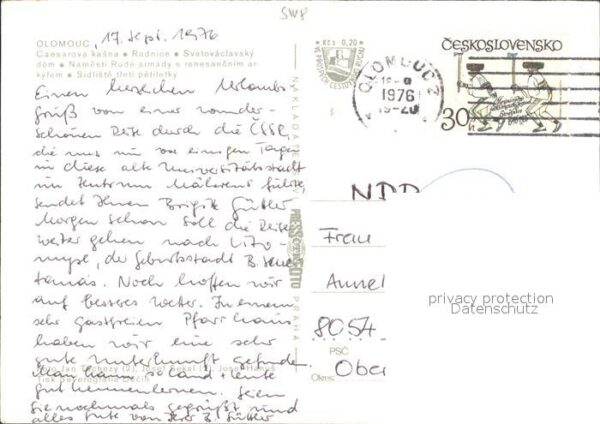 SW8
17. Sept. 1976
OLOMOUC
Caesarova kašna • Radnice • Svatováclavský
dóm • Náměstí Rudé armády s renesančním ar-
kýřem • Sídliště třetí pětiletky
Einen herzlichen Urlaubs-
gruß von einer wunder-
schönen Reise durch die ČSSR,
die uns nun vor einigen Tagen
in diese alte Universitätsstadt
im Zentrum Mährens führte,
sendet Ihnen Brigitte
Morgen schon soll die Reise
weiter gehen nach Lito-
myšl, der Geburtsstadt B. Sme-
tanas. Noch hoffen wir
auf besseres Wetter. In einem
sehr gastfreien Pfarrhaus
haben wir eine sehr
gute Unterkunft gefunden.
Man kann so Land + Leute
gut kennenlernen. Seien
Sie nochmals gegrüßt und
alles Gute von Ihrer B.
Foto Jan Tachezy (2), Josef Sekal (2),
Tisk Severografia Děčín
NAKLADA
PRESSFOTO
PRAHA
Kčs 0,20
OLOMOUC 2
1976
ČESKOSLOVENSKO
30 h
NDR
Frau
Annel
8054
PSČ
Ober
Okres
privacy protection
Datenschutz